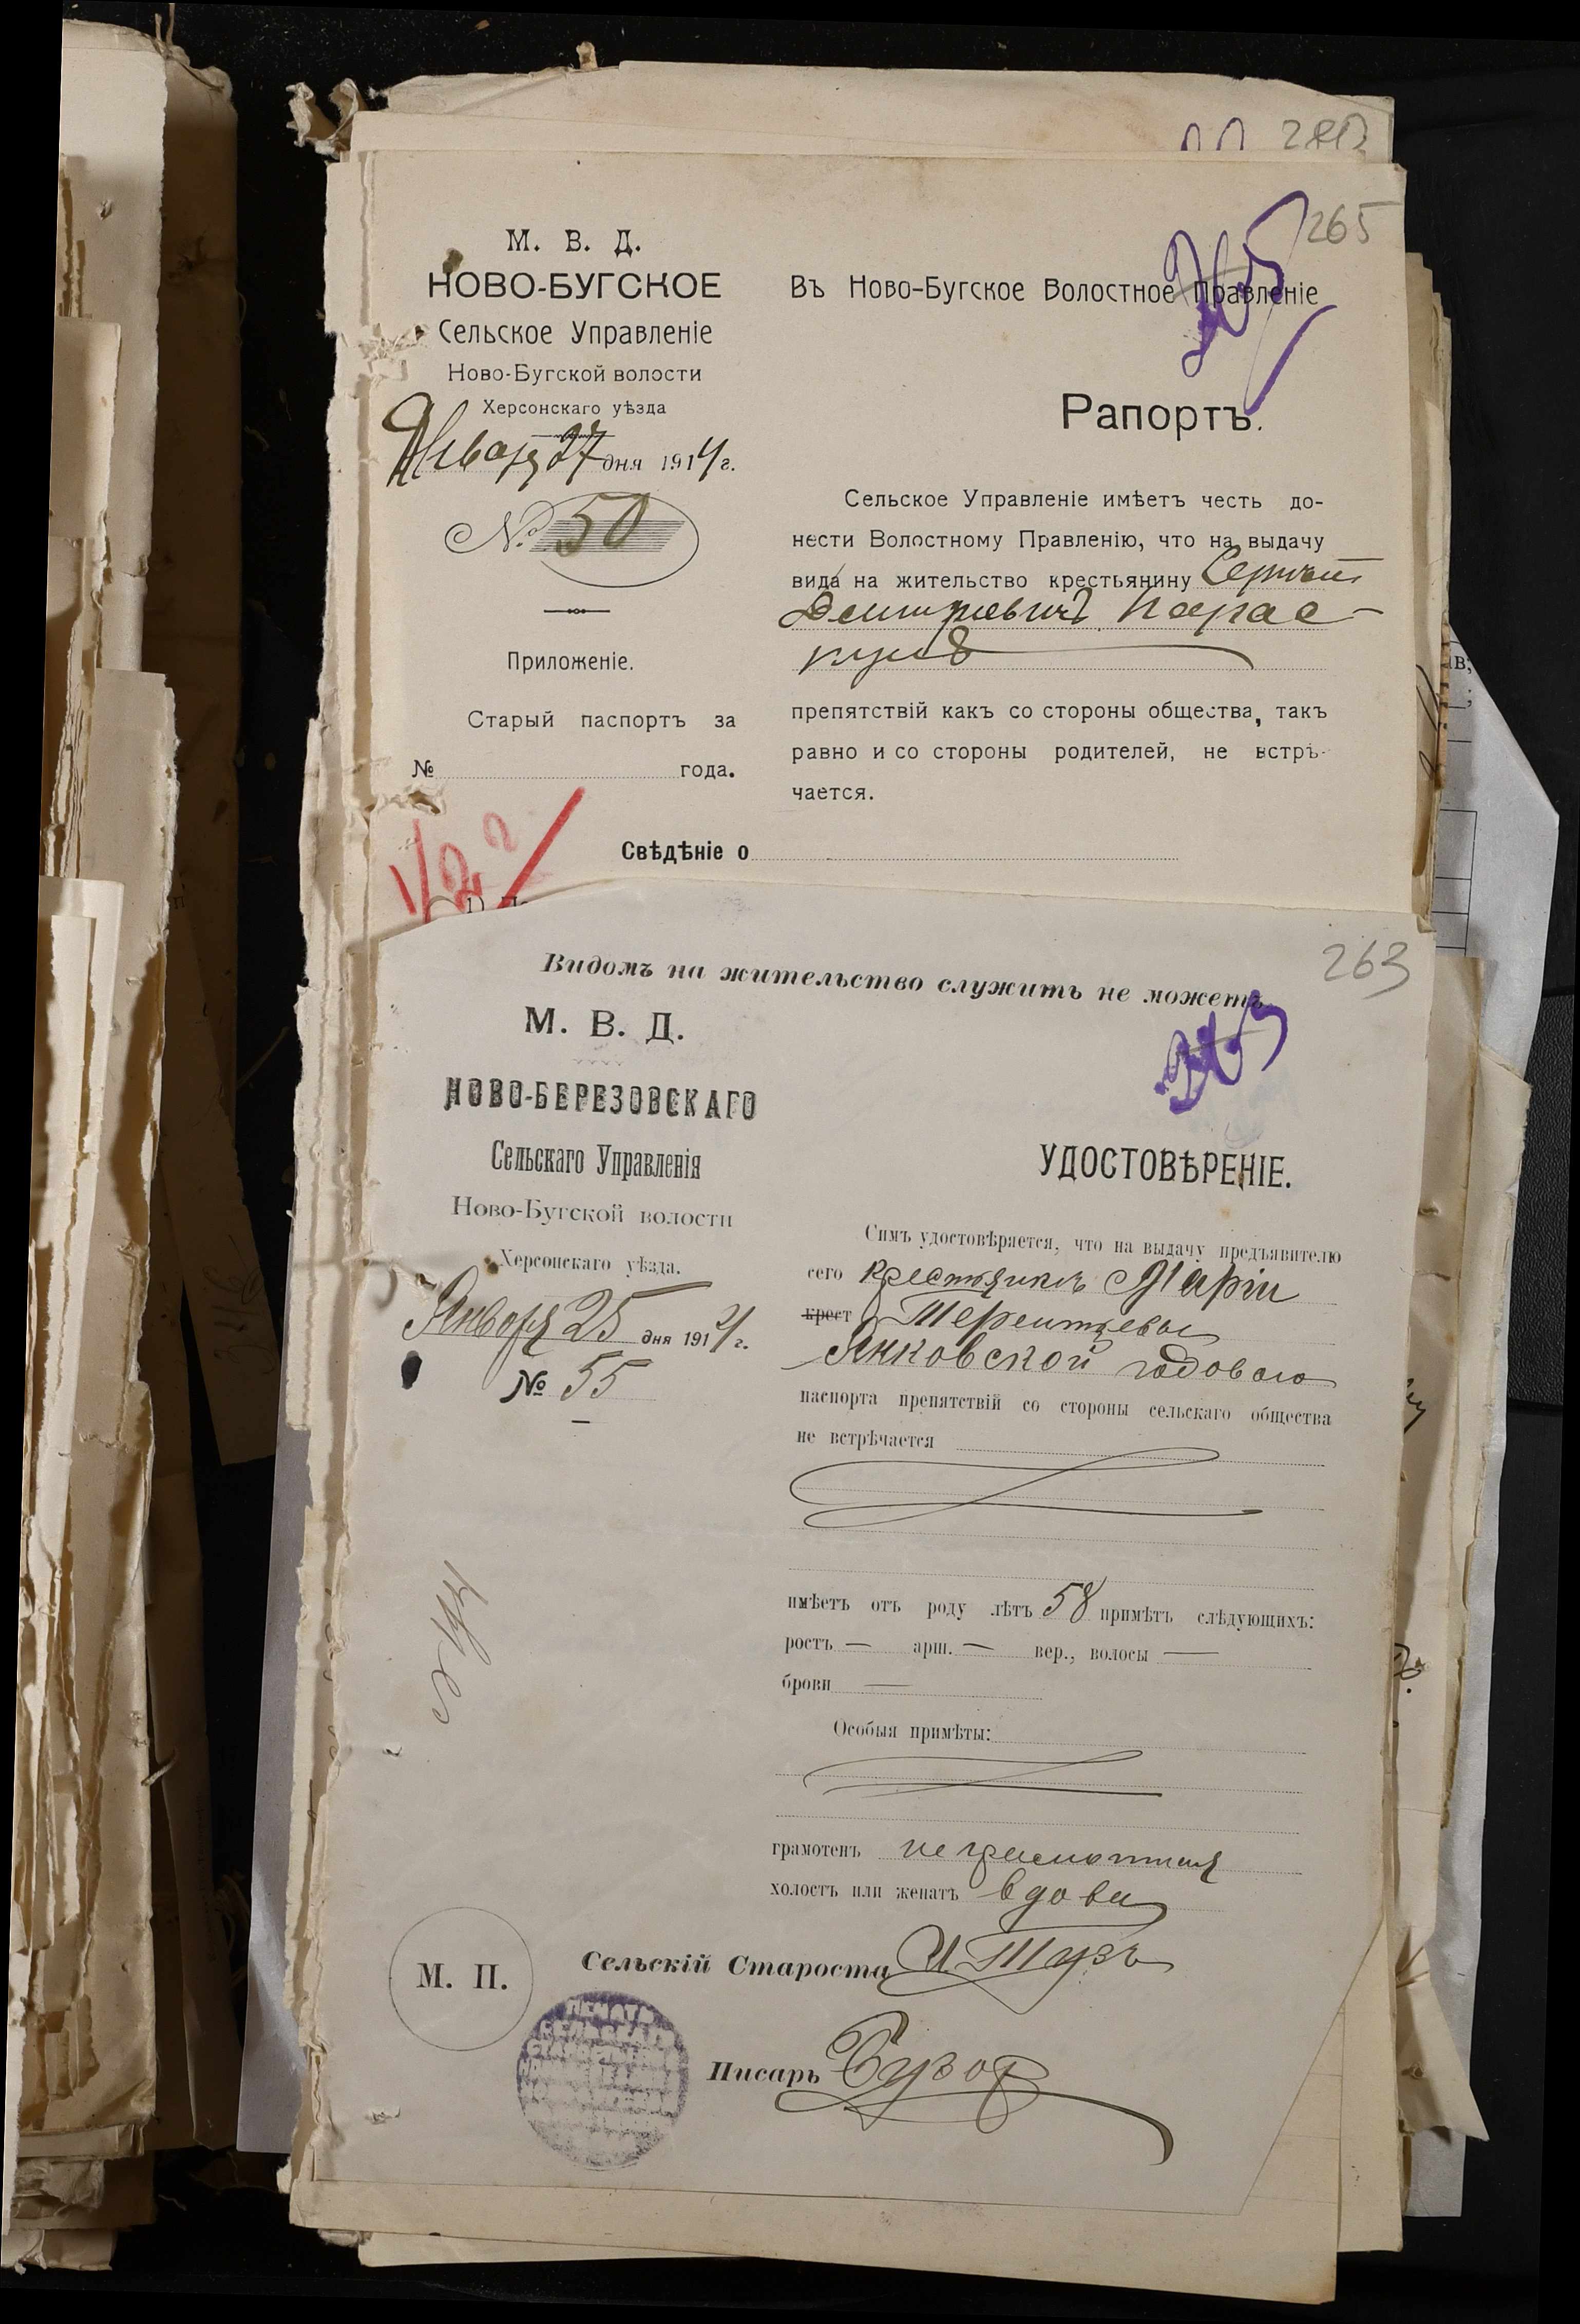 265
М. В. Д.
НОВО-БУГСКОЕ
Сельское Управленіе
Ново-Бугской волости
Херсонскаго уѣзда
Января 27 дня 1914 г.
№ 50
Приложеніе.
Старый паспортъ за
№ года.
Въ Ново-Бугское Волостное Правленіе
Рапортъ.
Сельское Управленіе имѣетъ честь до-
нести Волостному Правленію, что на выдачу
вида на жительство крестьянину Сергѣй
Дмитріевичъ
препятствій какъ со стороны общества, такъ
равно и со стороны родителей, не встрѣ-
чается.
Свѣдѣніе о
263
Видомъ на жительство служить не можетъ
М. В. Д.
НОВО-БЕРЕЗОВСКАГО
Сельскаго Управленія
Ново-Бугской волости
Херсонскаго уѣзда.
Января 25 дня 1914 г.
№ 55
УДОСТОВѢРЕНІЕ.
Симъ удостовѣряется, что на выдачу предъявителю
сего крестьянкѣ Маріи
крест Терентьевы
Янковской годового
паспорта препятствій со стороны сельскаго общества
не встрѣчается
имѣетъ отъ роду лѣтъ 58 примѣтъ слѣдующихъ:
ростъ — арш. — вер., волосы —
брови —
Особыя примѣты:
грамотенъ неграмотная
холостъ или женатъ вдова
М. П.
Сельскій Староста
Писарь